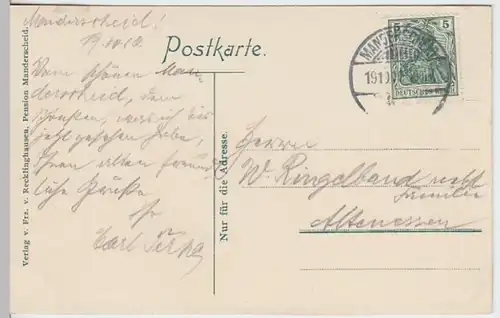 Manderscheid!
19.10.10.
Postkarte.
Vom schönen Man-
derscheid, dem
schönsten, was ich bis
jetzt gesehen habe,
Ihnen allen freund-
liche Grüße
Ihr
Carl
Verlag v. Frz. v. Recklinghausen, Pension Manderscheid.
Nur für die Adresse.
MANDERSCHEID
5 5
DEUTSCHES REICH
Herrn
W. Ringelband nebst
Familie
Altenessen